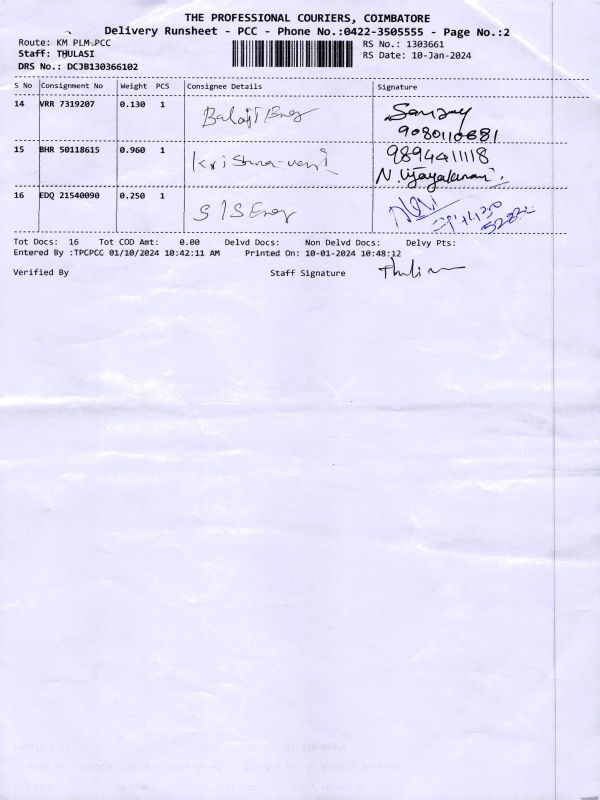 THE PROFESSIONAL COURIERS, COIMBATORE
Delivery Runsheet - PCC - Phone No.:0422-3505555 - Page No.:2
Route: KM PLM-PCC
RS No.: 1303661
Staff: THULASI
RS Date: 10-Jan-2024
DRS No.: DCJB130366102
S No Consignment No Weight PCS Consignee Details Signature
14 VRR 7319207 0.130 1 Balaji Eng Sanjay
9080110681
15 BHR 50118615 0.960 1 Krishna-veni 9894411118
N. Vijayakumari.
16 EDQ 21540090 0.250 1 SIS Eng
Tot Docs: 16 Tot COD Amt: 0.00 Delvd Docs: Non Delvd Docs: Delvy Pts:
Entered By :TPCPCC 01/10/2024 10:42:11 AM Printed On: 10-01-2024 10:48:12
Verified By Staff Signature